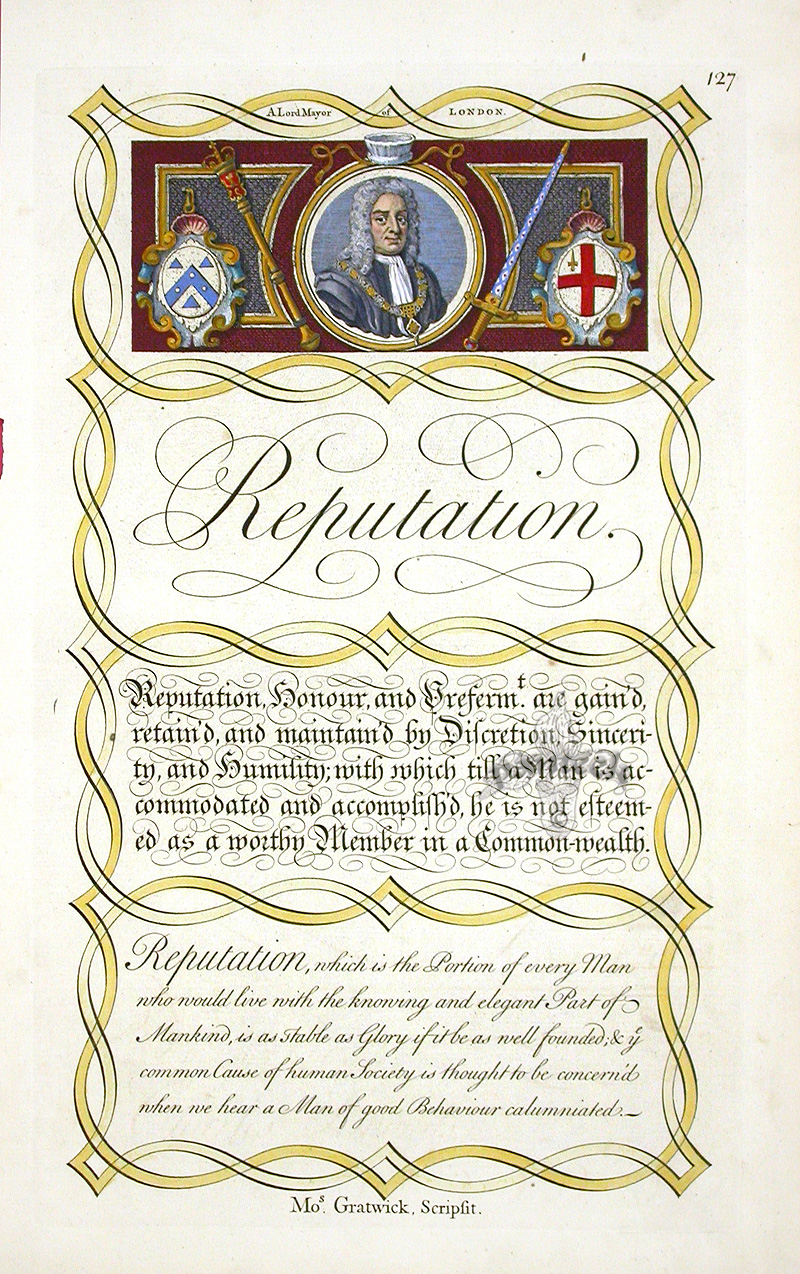 127
A Lord Mayor of LONDON.
Reputation.
Reputation, Honour, and Preferm.t are gain'd,
retain'd, and maintain'd by Discretion, Sinceri-
ty, and Humility; with which till a Man is ac-
commodated and accomplish'd, he is not esteem-
ed as a worthy Member in a Common-wealth.
Reputation, which is the Portion of every Man
who would live with the knowing and elegant Part of
Mankind, is as stable as Glory if it be as well founded; & yͤ
common Cause of human Society is thought to be concern'd
when we hear a Man of good Behaviour calumniated.–
Mo.s Gratwick, Scripſit.